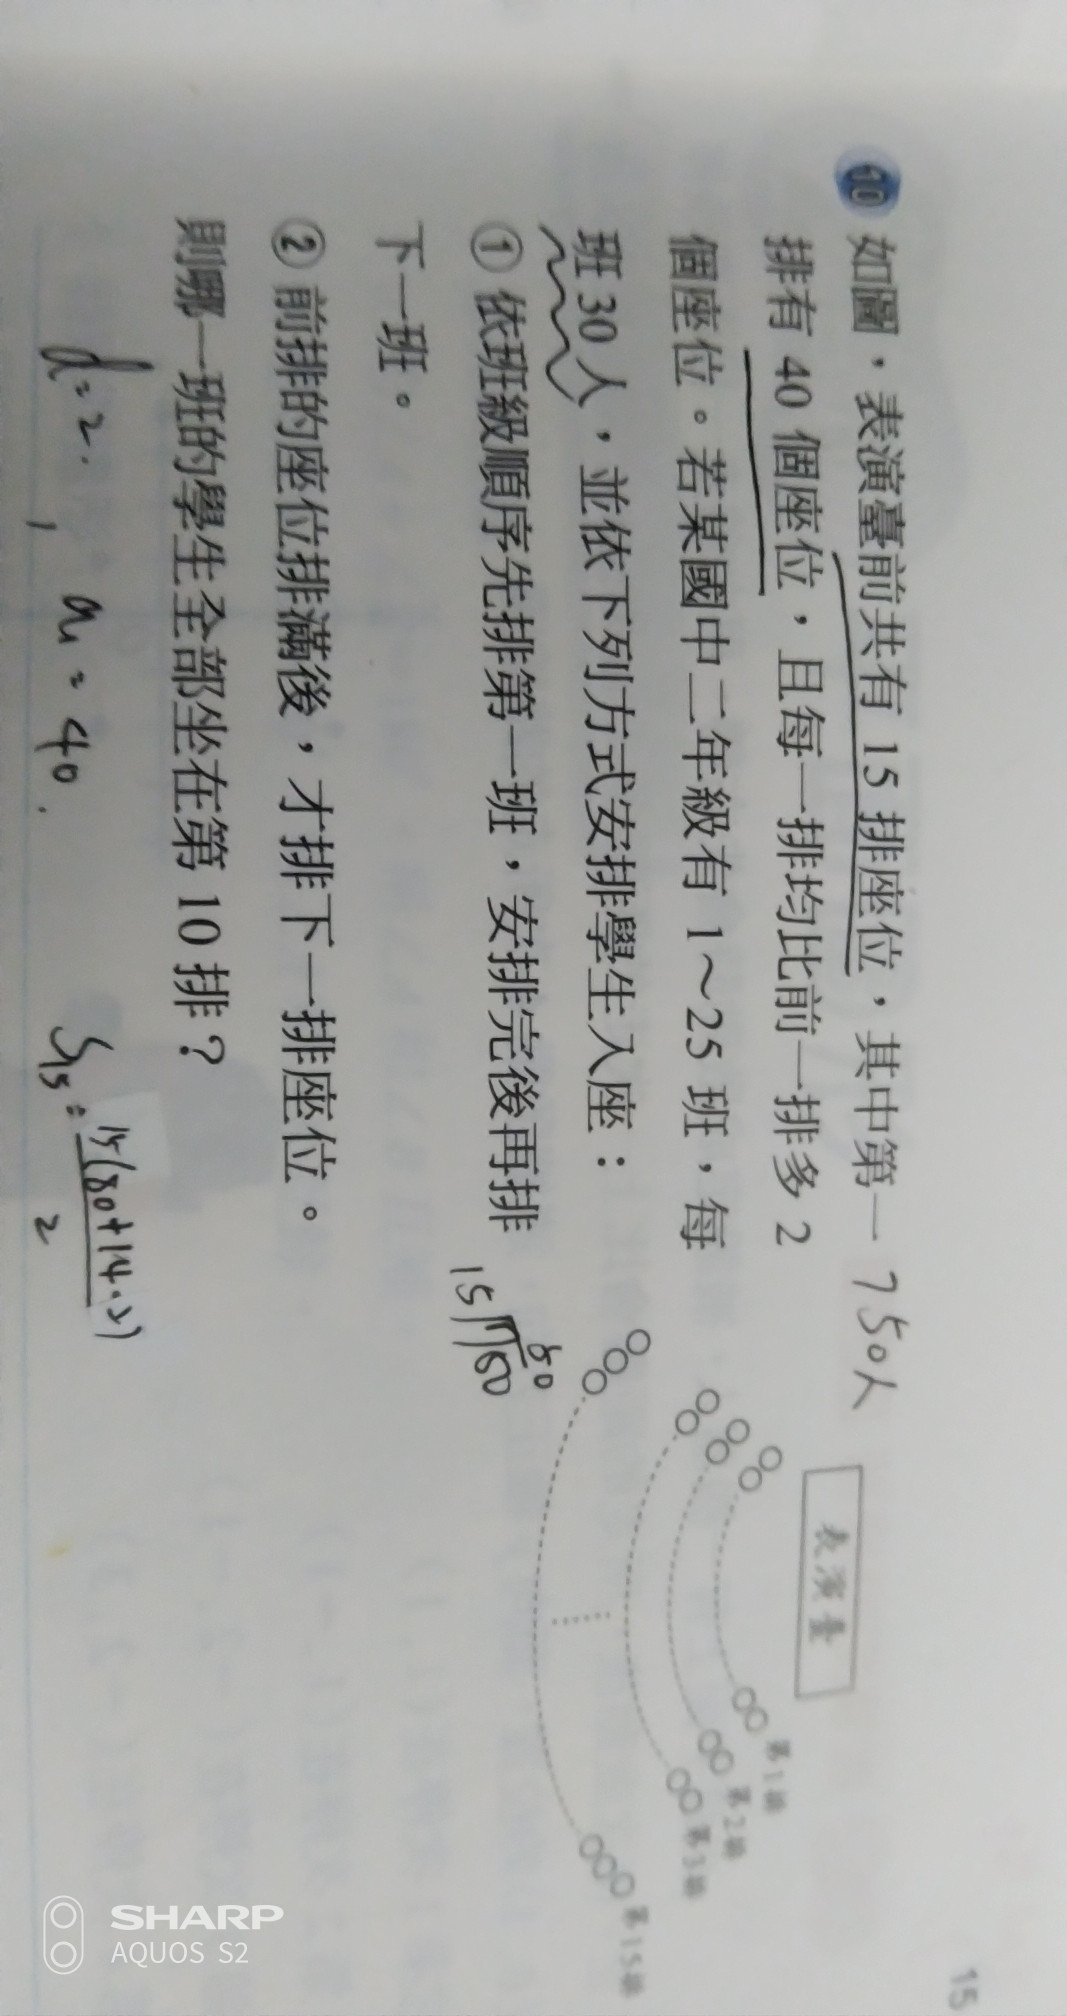 15
10 如圖，表演臺前共有 15 排座位，其中第一
排有 40 個座位，且每一排均比前一排多 2
個座位。若某國中二年級有 1～25 班，每
班 30 人，並依下列方式安排學生入座：
① 依班級順序先排第一班，安排完後再排
下一班。
② 前排的座位排滿後，才排下一排座位。
則哪一班的學生全部坐在第 10 排？
750人
表演臺
第1排
第2排
第3排
第15排
50
15
d=2, a₁=40.
S15=15(80+14·2)
2
SHARP
AQUOS S2